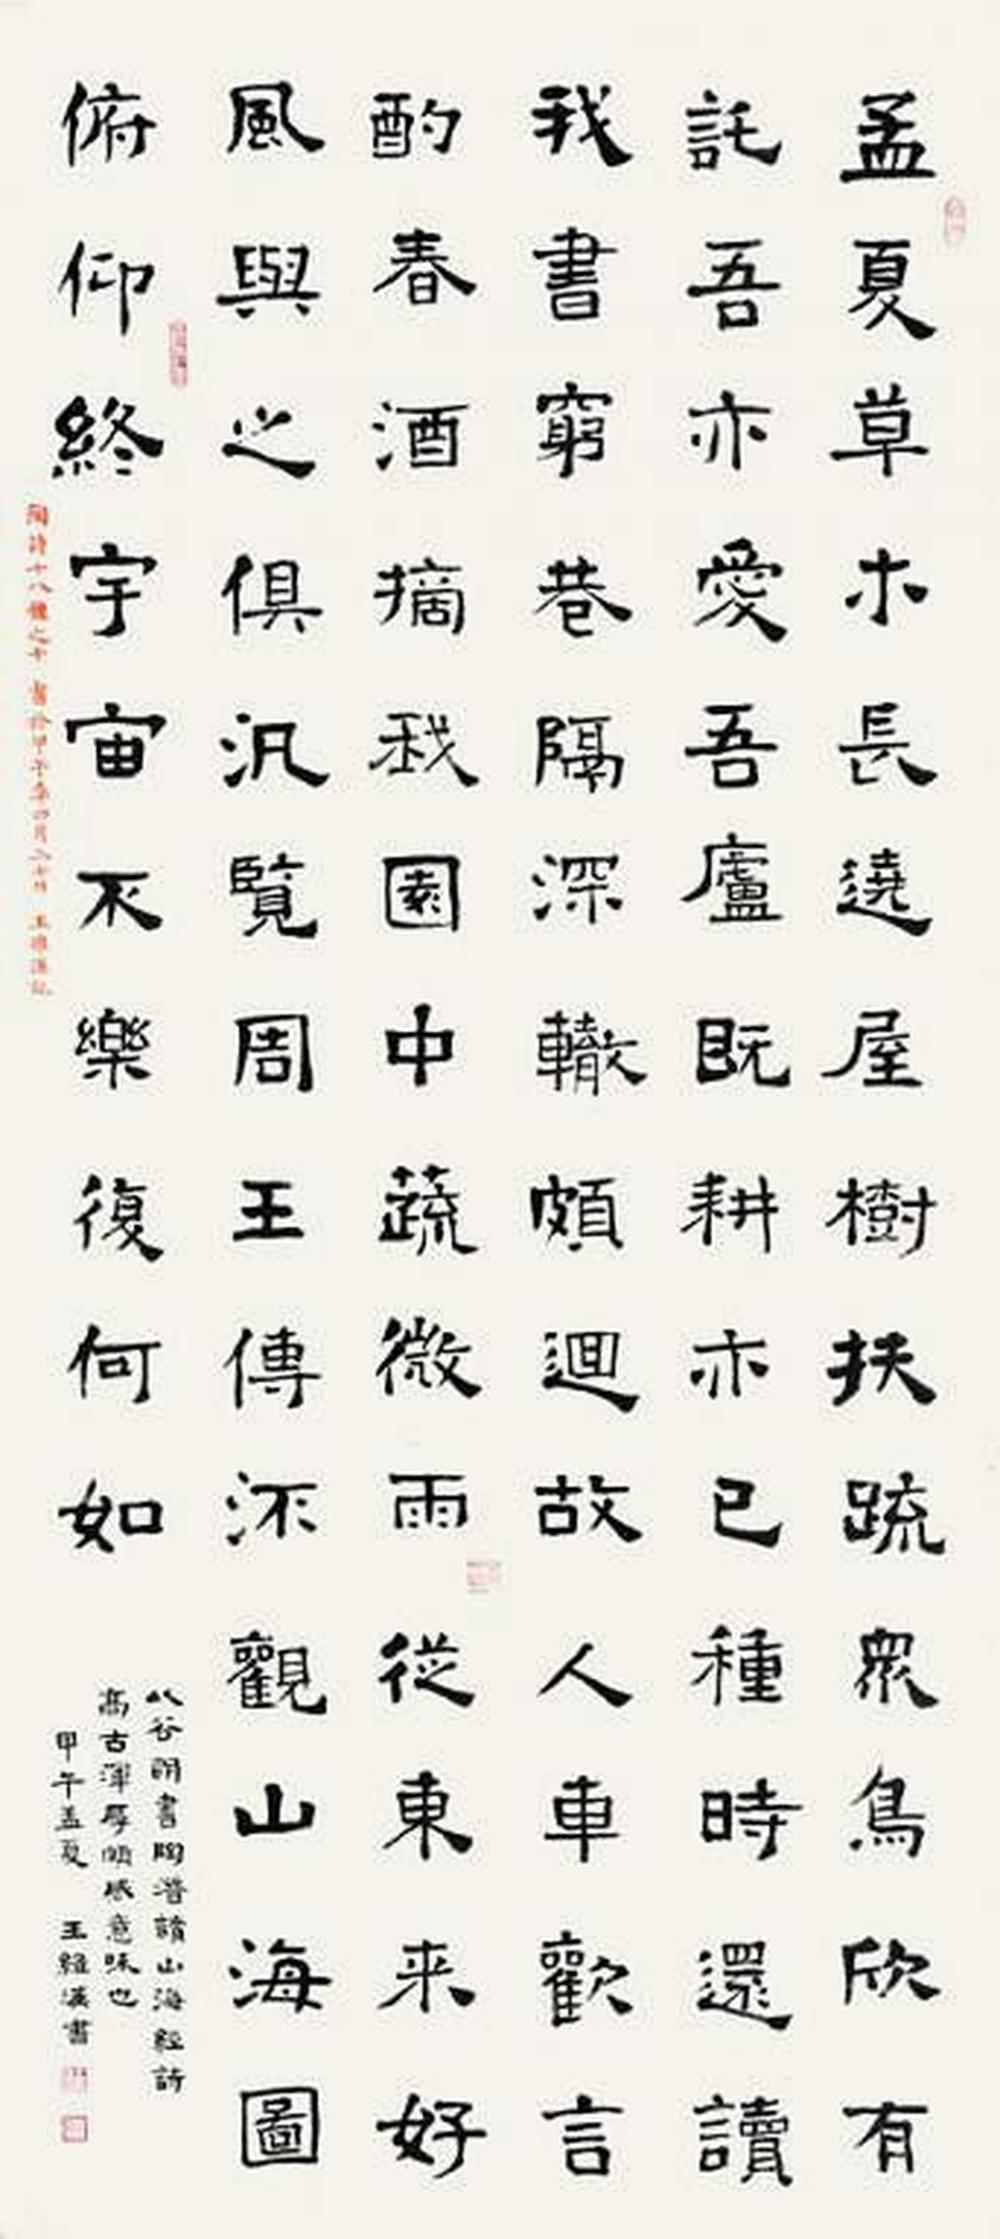 孟夏草木長遶屋樹扶疏衆鳥欣有
託吾亦愛吾廬既耕亦已種時還讀
我書窮巷隔深轍頗迴故人車歡言
酌春酒摘我園中蔬微雨從東来好
風與之俱汎覧周王傳还觀山海圖
俯仰終宇宙不樂復何如
八谷朗書陶潛讀山海經詩
高古渾厚頗眽意味也
甲午孟夏 王維漢書
陶詩十八種之十 書於甲午年四月二十日 王維漢記